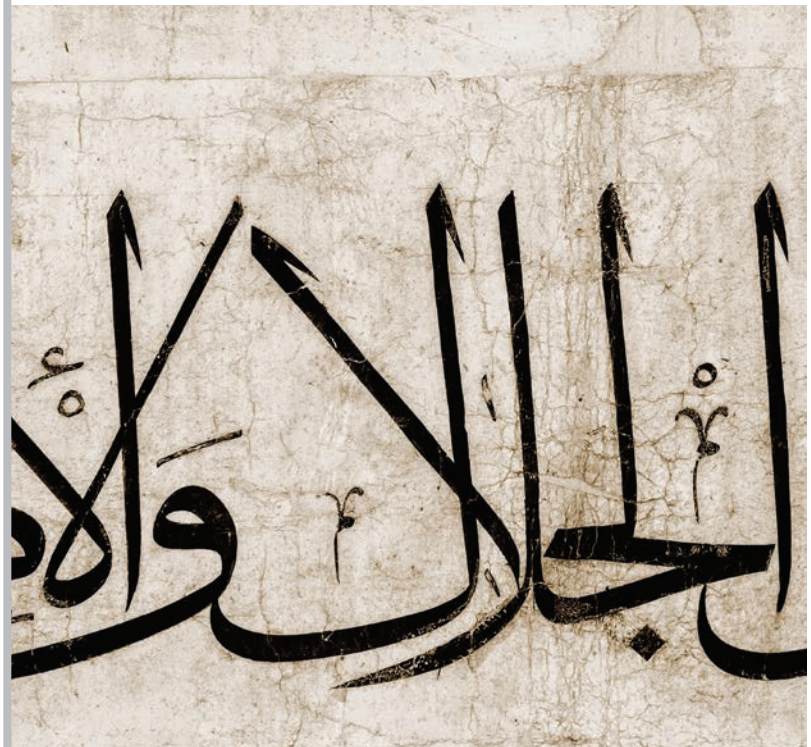 الْجلال وَالْأ